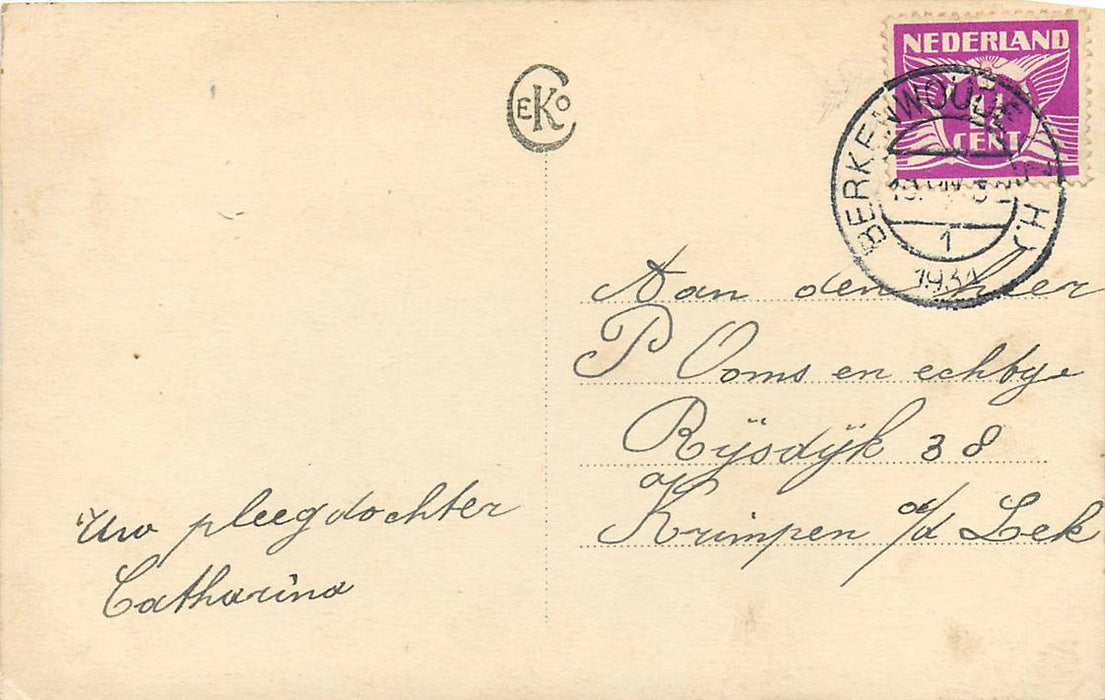 CEKO
NEDERLAND
CENT
BERKENWOUDE (Z.H.)
1
1931
Aan den heer
P Ooms en echtg.
Rijsdijk 38
Krimpen a/d Lek
Uw pleegdochter
Catharina